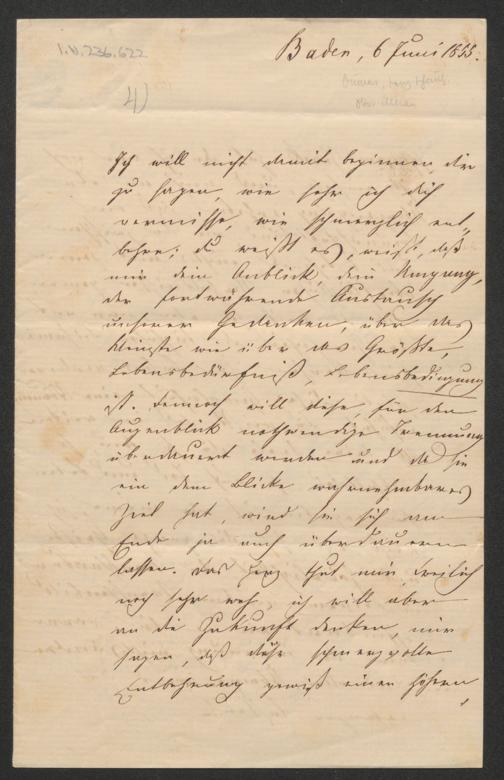 I.N. 236.622
Baden, 6 Juni 1855.
4)
Ich will nicht damit beginnen, dir
zu sagen, wie sehr ich dich
vermisse, wie schmerzlich ent-
behre; du weißt es, weißt, daß
mir dein Anblick, dein Umgang,
der fortwährende Austausch
unserer Gedanken, über das
Kleinste wie über das Größte,
Lebensbedürfniß, Lebensbedingung
ist. Dennoch will diese, für den
Augenblick nothwendige Trennung
überdauert werden und da sie
ein dem Blicke wahrnehmbares
Ziel hat, wird sie sich am
Ende ja auch überdauern
lassen. Das Herz thut mir freilich
noch sehr weh, ich will aber
an die Zukunft denken, mir
sagen, daß diese schmerzvolle
Entbehrung gewiß einen höhern